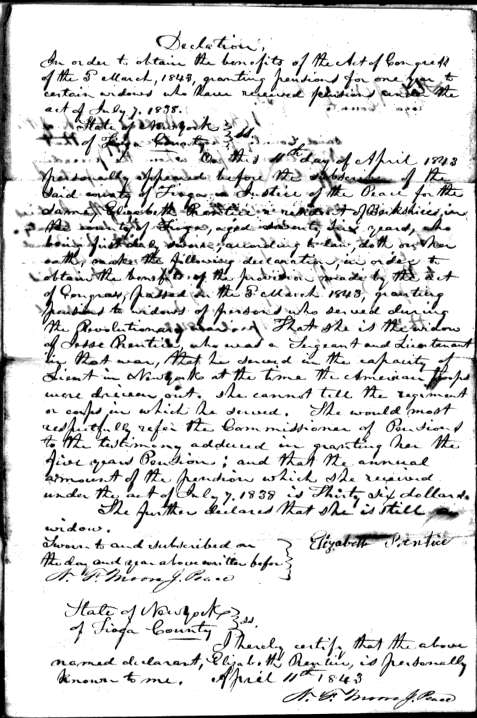 Declation,
In order to obtain the benefits of the Act of Congress
of the 3d March, 1843, granting pensions for one year to
certain widows who have received pensions under the
act of July 7, 1838.
State of New York }
of Tioga County } ss.
On this 11th day of April 1843
personally appeared before the subscriber of the
said county of Tioga, a Justice of the Peace for the
same, Elizabeth Prentice a resident of Berkshire, in
the county of Tioga, aged seventy six years, who
being first duly sworn, according to law, doth on her
oath, make the following declaration, in order to
obtain the benefits of the provision made by the act
of Congress, passed on the 3d March 1843, granting
pensions to widows of persons who served during
the Revolutionary war. That she is the widow
of Jesse Prentice, who was a Sergeant and Lieutenant
in that war, that he served in the capacity of
Lieut in New York at the time the American troops
were driven out. She cannot tell the regiment
or corps in which he served. She would most
respectfully refer the Commissioner of Pensions
to the testimony adduced in granting her the
five years Pension; and that the annual
amount of the pension which she received
under the act of July 7, 1838 is Thirty six dollars.
She further declares that she is still a
widow.
Sworn to and subscribed on }
the day and year above written before }
Elizabeth Prentice
J. Peace
State of New York }
of Tioga County } ss.
I hereby certify that the above
named declarant, Elizabeth Prentice, is personally
known to me. April 11th 1843
J. Peace